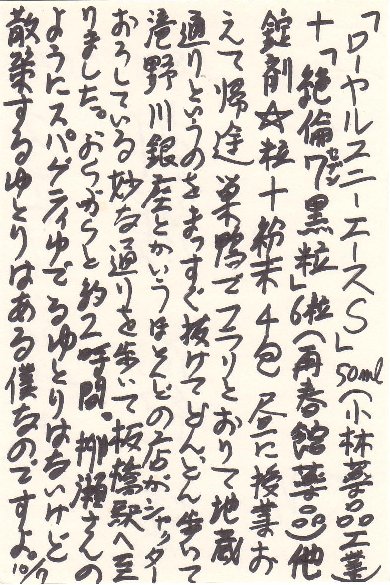 「ローヤルスニーエースS」50ml（小林薬品工業）
+「絶倫7黒粒」6粒（再春館薬品）他
セブン
錠剤☆粒+粉末4包 昼に授業お
えて帰途 巣鴨でフラリとおりて地蔵
通りというのをまっすぐ抜けてどんどん歩いて
滝野川銀座とかいうほとんどの店がシャッター
おろしている妙な通りを歩いて板橋駅へ至
りました。おらがらと約2時間。柳瀬さんの
ようにスパゲティゆでるゆとりはないけど
散策するゆとりはある僕なのですよ。
10/7